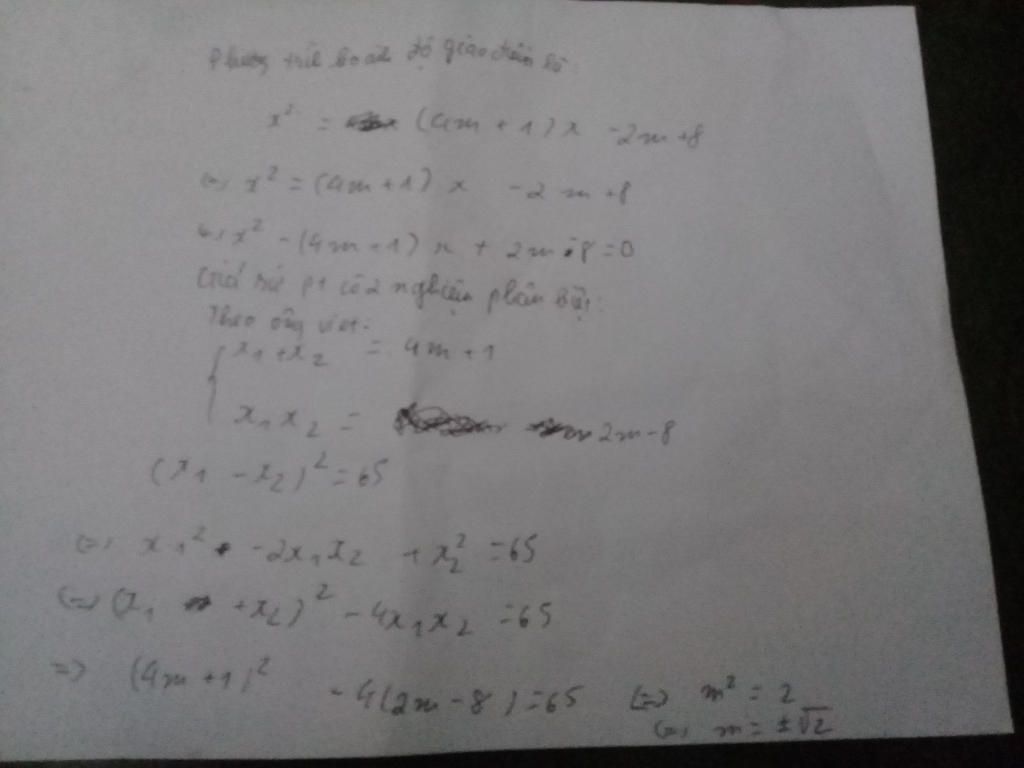 Phương trình hoành độ giao điểm là:
x² = (4m + 1) x - 2m + 8
<=> x² = (4m + 1) x - 2m + 8
<=> x² - (4m + 1) x + 2m - 8 = 0
Giả sử pt có 2 nghiệm phân biệt:
Theo ông viet:
x₁ + x₂ = 4m + 1
x₁x₂ = 2m - 8
(x₁ - x₂)² = 65
<=> x₁² - 2x₁x₂ + x₂² = 65
<=> (x₁ + x₂)² - 4x₁x₂ = 65
=> (4m + 1)² - 4(2m - 8) = 65 <=> m² = 2
<=> m = ±√2